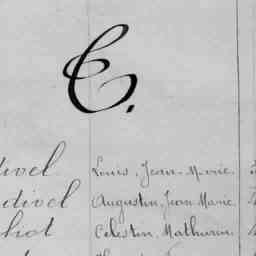 C.
divel Louis, Jean Marie
divel Augustin, Jean Marie
hot Célestin, Mathurin